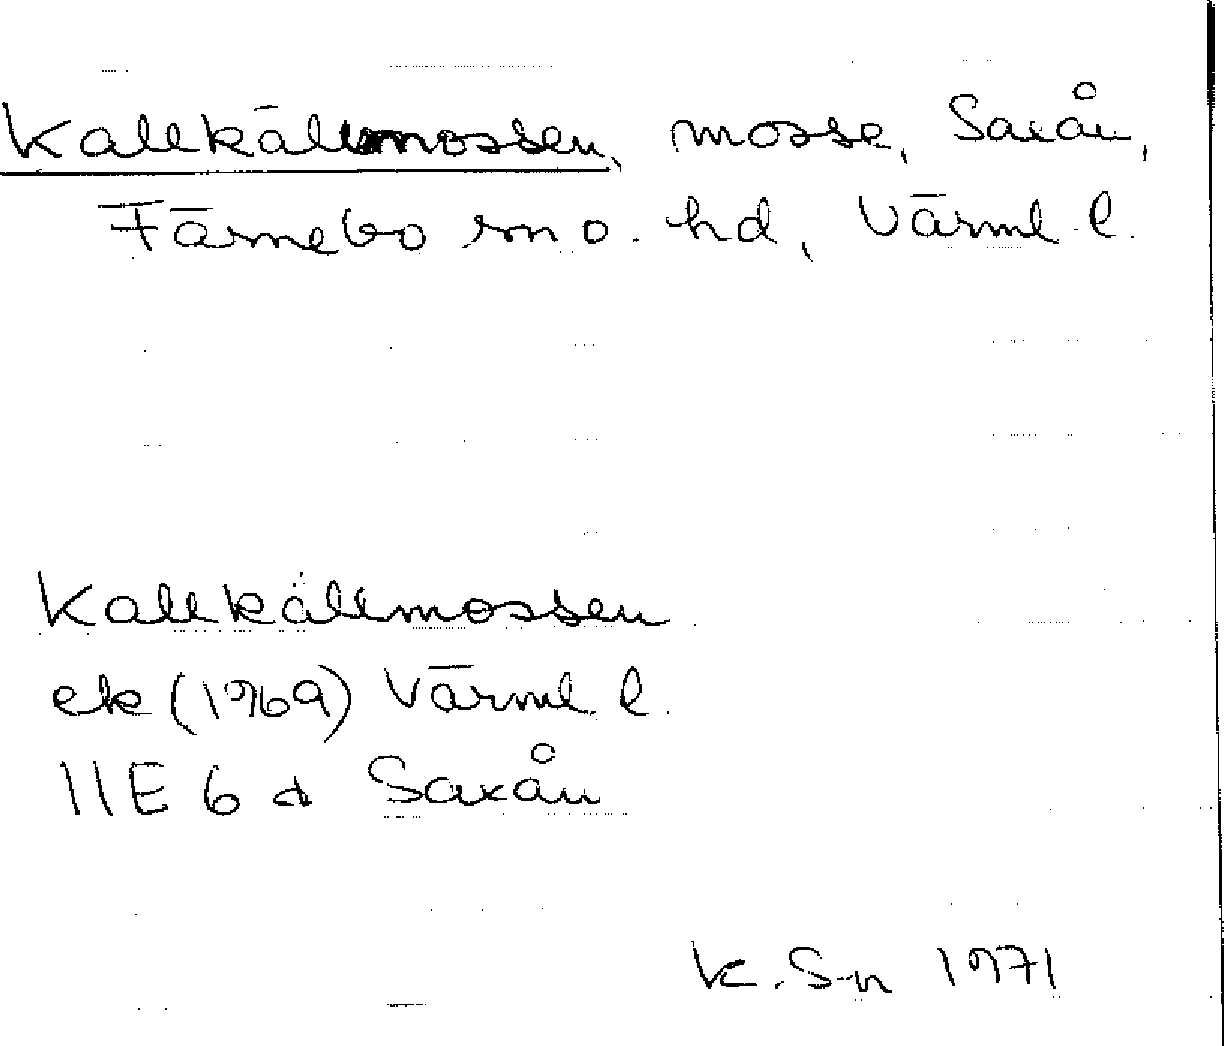 Kallkällmossen, mosse, Saxån,
Färnebo sn o. hd, Värml. l.
Kallkällmossen
ek (1969) Värml. l.
11E 6 d Saxån
K. S-n 1971